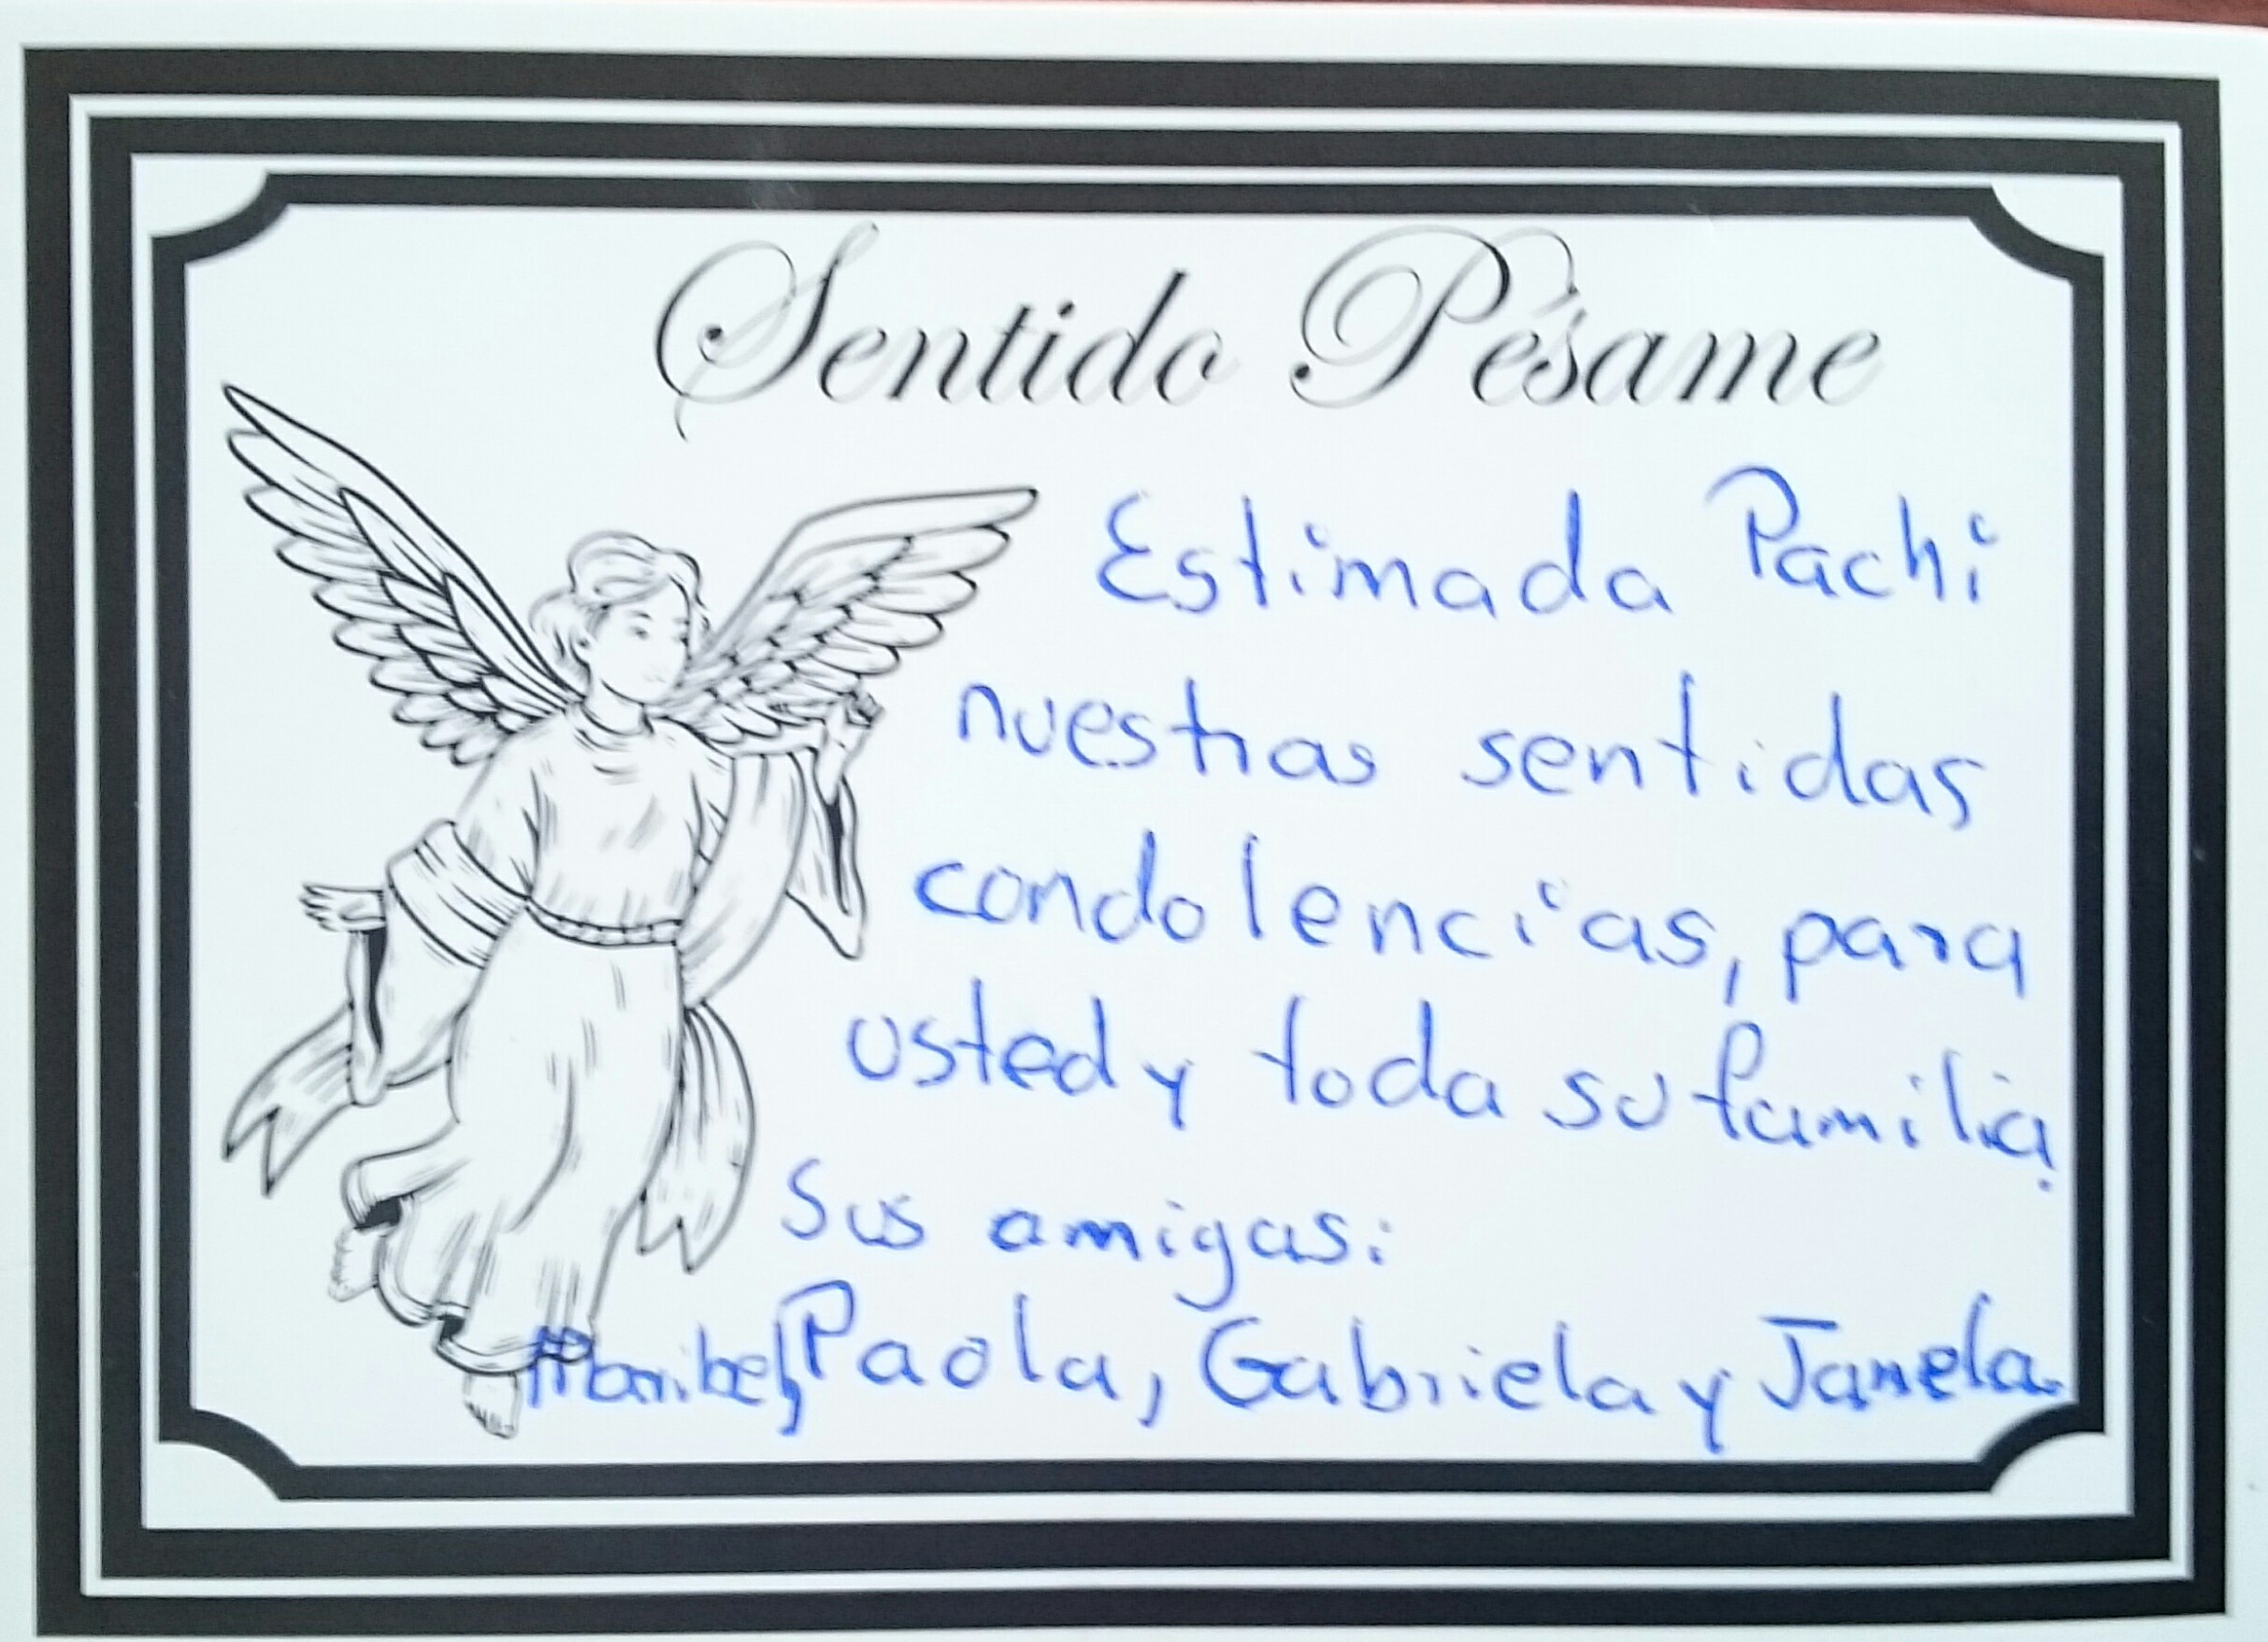 Sentido Pésame
Estimada Pachi
nuestras sentidas
condolencias, para
usted y toda su familia.
Sus amigas:
Maribel, Paola, Gabriela y Janela.